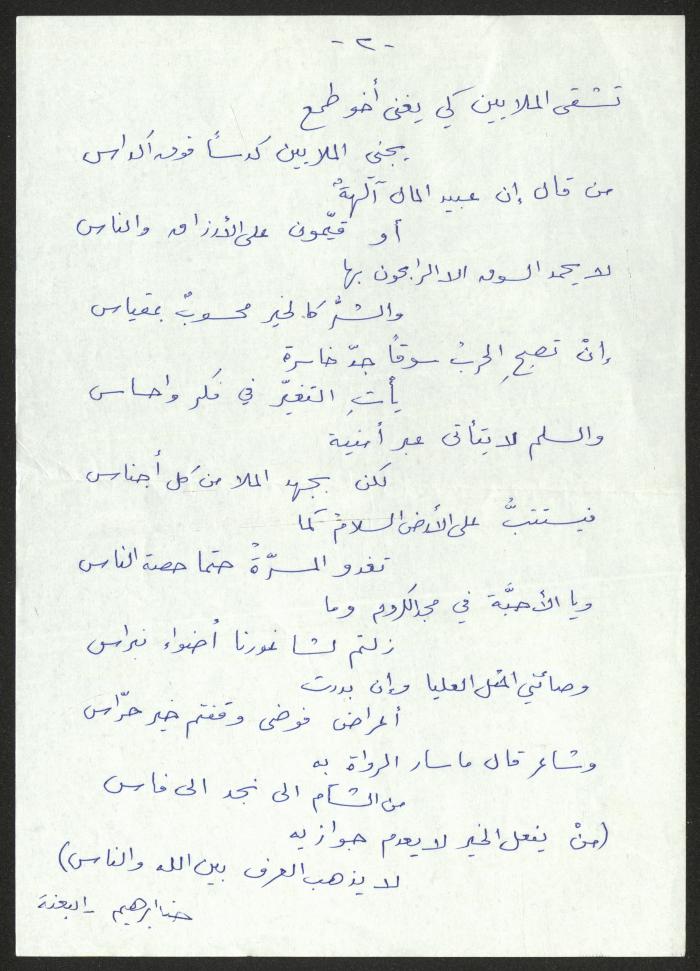 -٢-
تشقى الملايين كي يغنى أخو طمع
يجني الملايين كدساً فوق أكداس
من قال إن عبيد المال آلهةٌ
أو قيّمون على الأرزاق والناس
لا يحمد السوق الا الرابحون بها
والشرُّ كالخير محسوبٌ بمقياس
إنْ تصبحِ الحربُ سوقاً جدّ خاسرة
يأتِ التغيّر في فكر واحساس
والسلم لا يتأتى عبر أمنية
لكن بجهد الملا من كل أجناس
فيستتبُّ على الأرض السلامُ كما
تغدو المسرّةُ حتما حصة الناس
ويا الأحبَّة في مجد الكروم وما
زلتم لشاغورنا أضواء نبراس
وصائني المثل العليا وإن بدرت
أعراض فوضى وقفتم خير حرّاس
وشاعر قال ما سار الرواة به
من الشآم الى نجد الى فاس
(منْ يفعل الخير لا يعدم جوازيه
لا يذهب العرف بين الله والناس)
حنا ابرهيم - البعنة